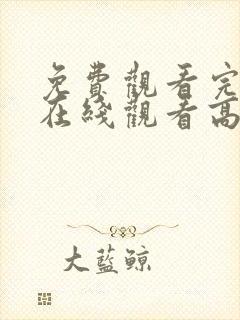 免費觀看完
在綫觀看高
大藍鯨